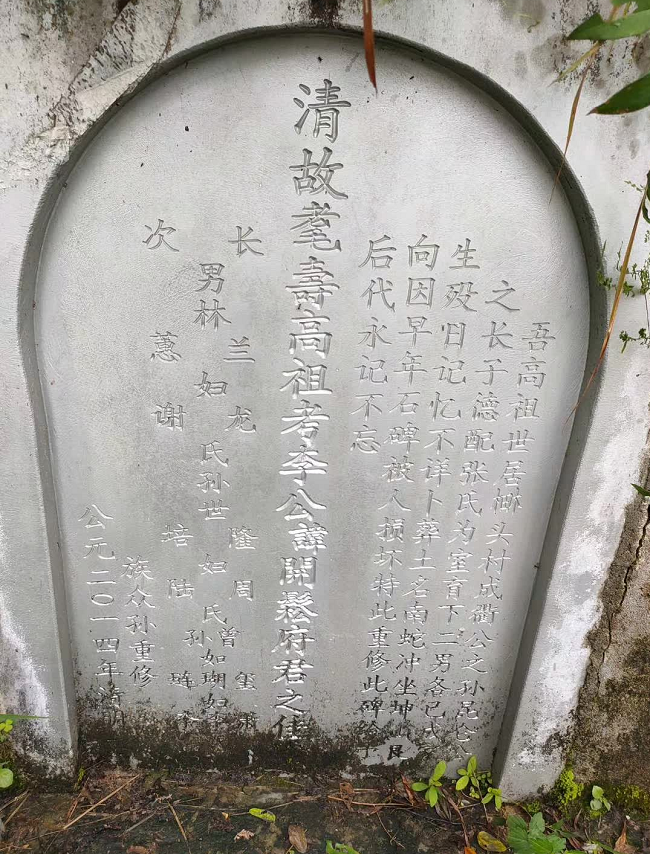 吾高祖世居头村成衢公之孙昆
之长子德配张氏为室育下二男各已成
生殁旧记忆不详卜葬土名南蛇冲坐坤艮
向因早年石碑被人损坏特此重修此碑
后代永记不忘
清故耄壽高祖考李公諱開鬆府君之佳
长 兰 龙 隆 周 玺
男林 妇 氏孙世 妇 氏曾孙如瑚如
次 蕙 谢 培 陆 暐
族众孙重修
公元二〇一四年清明